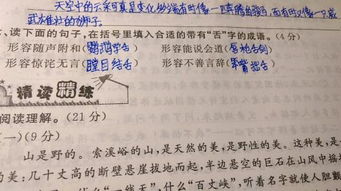 天空中的云采可真是变化多端有时像一只奔腾的骏马,而有时又像一只威
武雄壮的狮子。
、读下面的句子,在括号里填入合适的带有“舌”字的成语。(4分)
形容随声附和(鹦鹉学舌) 形容能说会道(唇枪舌剑)
形容惊诧无言(瞠目结舌) 形容不善言辞(笨嘴拙舌)
精读精练
阅读理解。(21分)
一)(9分)
山是野的。索溪峪的山,是天然的美,是野性的美。这种美,是
的美:几十丈高的断壁悬崖拔地而起,半边悬空的巨石在山风中摇
“一线天”,什么“百丈峡”,听着名字就使人胆颤